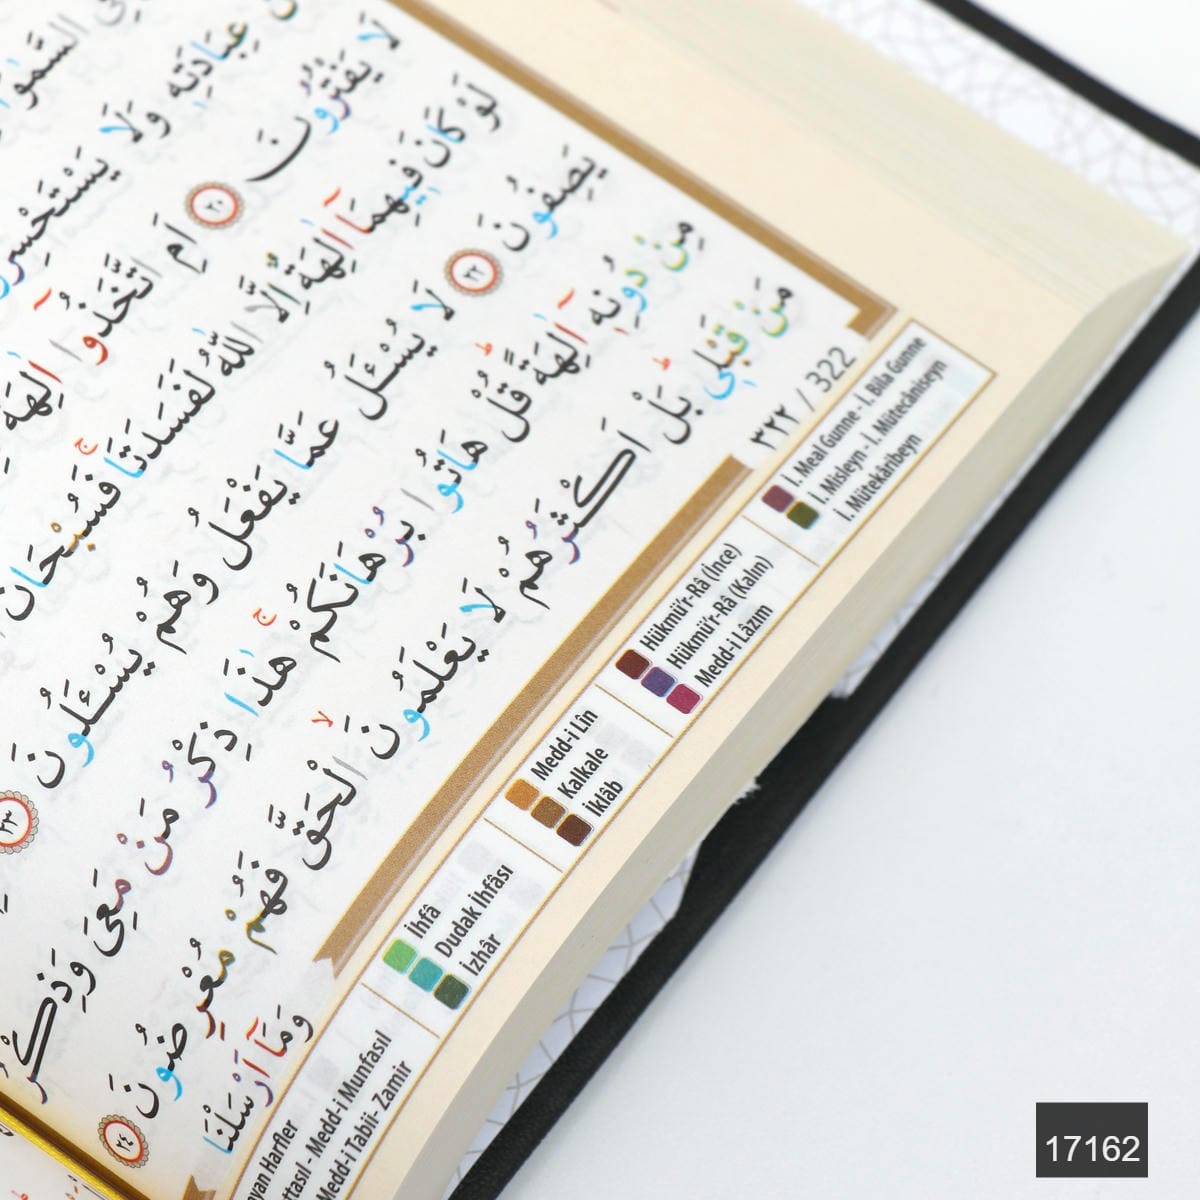 فِي السَّمٰوَا
عِبَادَتِه۪ وَلَا يَسْتَحْسِرُو
لَا يَفْتُرُونَ ﴿٢٠﴾ اَمِ اتَّخَذُٓوا اٰلِهَةً
لَوْ كَانَ ف۪يهِمَٓا اٰلِهَةٌ اِلَّا اللّٰهُ لَفَسَدَتَاۚ فَسُبْحَانَ
يَصِفُونَ ﴿٢٢﴾ لَا يُسْـَٔلُ عَمَّا يَفْعَلُ وَهُمْ يُسْـَٔلُونَ ﴿٢٣﴾
مِنْ دُونِه۪ٓ اٰلِهَةًۜ قُلْ هَاتُوا بُرْهَانَكُمْۚ هٰذَا ذِكْرُ مَنْ مَعِيَ وَذِكْرُ
مَنْ قَبْل۪يۜ بَلْ اَكْثَرُهُمْ لَا يَعْلَمُونَۙ الْحَقَّ فَهُمْ مُعْرِضُونَ ﴿٢٤﴾
وَمَٓا اَرْسَلْنَا
٣٢٢ / 322
İ. Meal Gunne - İ. Bila Gunne
İ. Misleyn - İ. Mütecâniseyn
İ. Mütekâribeyn
Hükmü'r-Râ (İnce)
Hükmü'r-Râ (Kalın)
Medd-i Lâzım
Medd-i Lîn
Kalkale
İklâb
İhfâ
Dudak İhfâsı
İzhâr
Harfler
- Medd-i Munfasıl
Medd-i Tabii- Zamir
17162